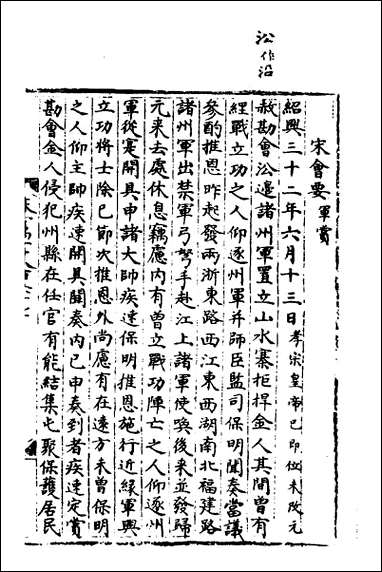 沿作沿
宋會要 軍賞
紹興三十二年六月十三日孝宗皇帝已即位未改元
赦勘會㳂邊諸州軍置立山水寨拒捍金人其間曾有
經戰立功之人仰逐州軍并帥臣監司保明聞奏當議
參酌推恩昨起發兩浙東路西江東西湖南北福建路
諸州軍出禁軍弓弩手赴江上諸軍使喚後來並發歸
元来去處休息竊慮內有曾立戰功陣亡之人仰逐州
軍從寔開具申諸大帥疾速保明推恩施行近緣軍興
立功將士除已節次推恩外尚慮有在遠方未曾保明
之人仰主帥疾速開具聞奏內已申奏到者疾速定賞
勘會金人侵犯州縣在任官有能結集屯聚保護居民